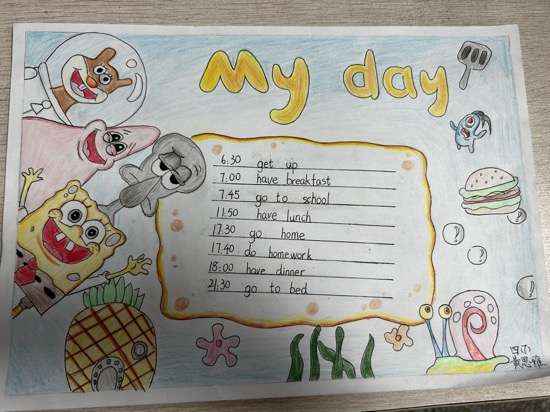 My day
6:30 get up
7:00 have breakfast
7.45 go to school
11:50 have lunch
17:30 go home
17.40 do homework
18:00 have dinner
21:30 go to bed
黄思雅